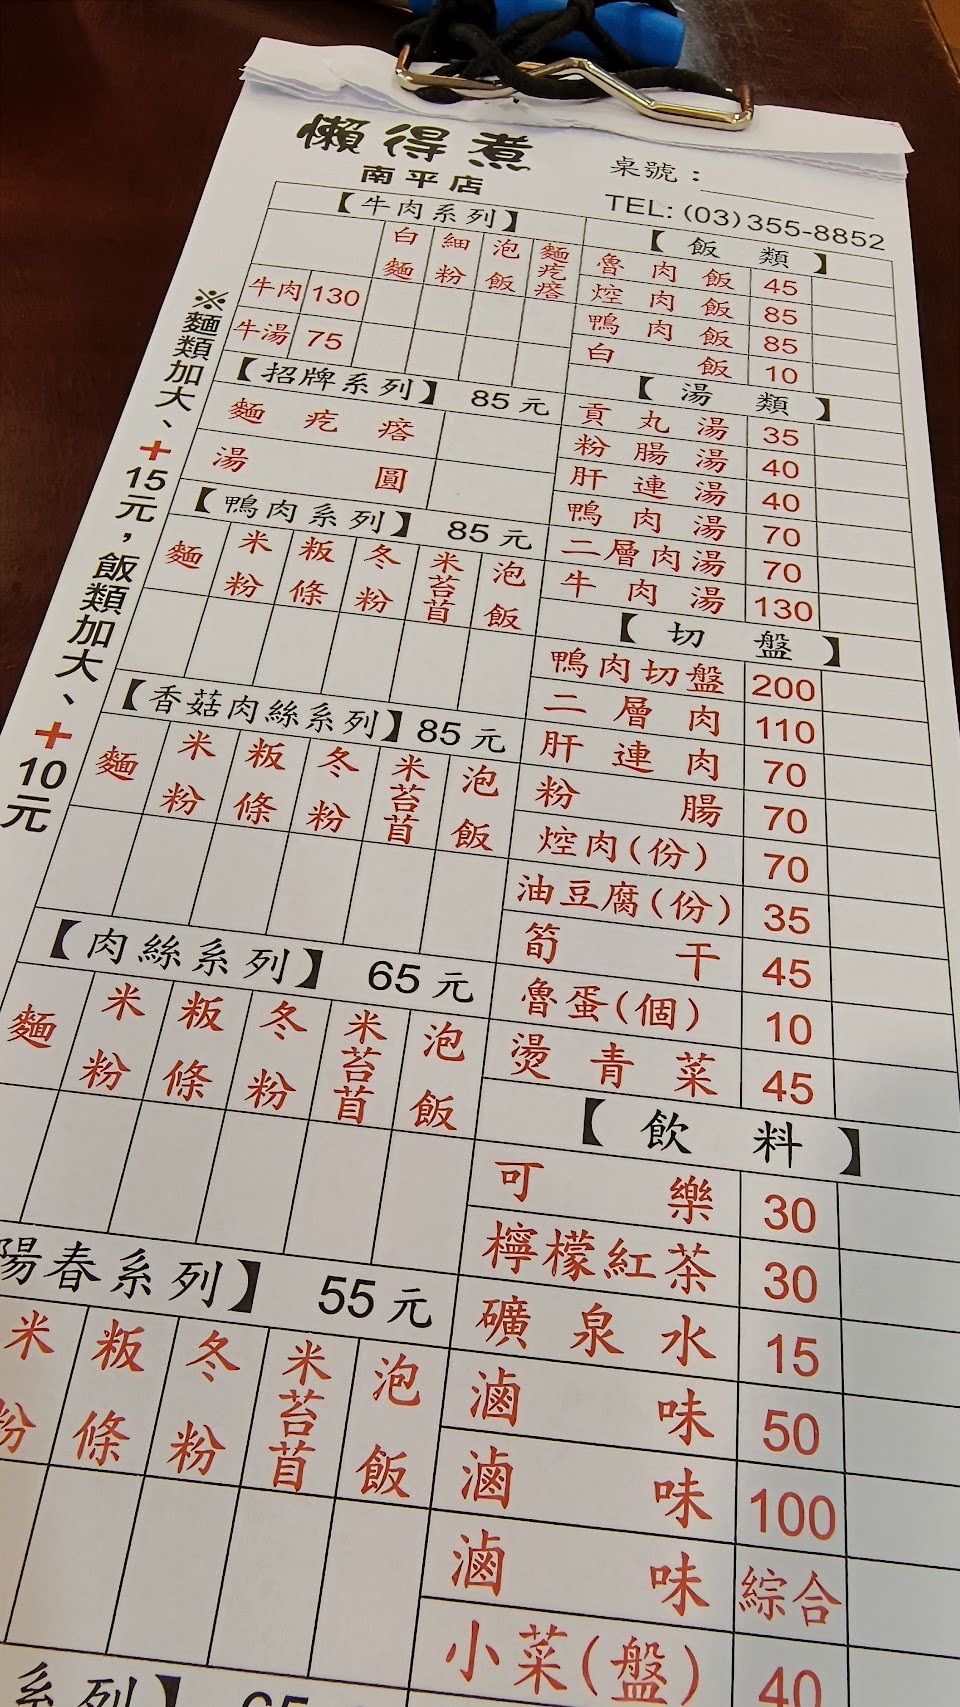 懶得煮
南平店
桌號：
TEL: (03)355-8852
※麵類加大、+15元，飯類加大、+10元
【牛肉系列】
白麵 細粉 泡飯 麵疙瘩
牛肉 130
牛湯 75
【招牌系列】 85元
麵疙瘩
湯圓
【鴨肉系列】 85元
麵 米粉 粄條 冬粉 米苔苜 泡飯
【香菇肉絲系列】85元
麵 米粉 粄條 冬粉 米苔苜 泡飯
【肉絲系列】 65元
麵 米粉 粄條 冬粉 米苔苜 泡飯
陽春系列】 55元
米粉 粄條 冬粉 米苔苜 泡飯
系列】
【飯類】
魯肉飯 45
焢肉飯 85
鴨肉飯 85
白飯 10
【湯類】
貢丸湯 35
粉腸湯 40
肝連湯 40
鴨肉湯 70
二層肉湯 70
牛肉湯 130
【切盤】
鴨肉切盤 200
二層肉 110
肝連肉 70
粉腸 70
焢肉(份) 70
油豆腐(份) 35
筍干 45
魯蛋(個) 10
燙青菜 45
【飲料】
可樂 30
檸檬紅茶 30
礦泉水 15
滷味 50
滷味 100
滷味 綜合
小菜(盤) 40